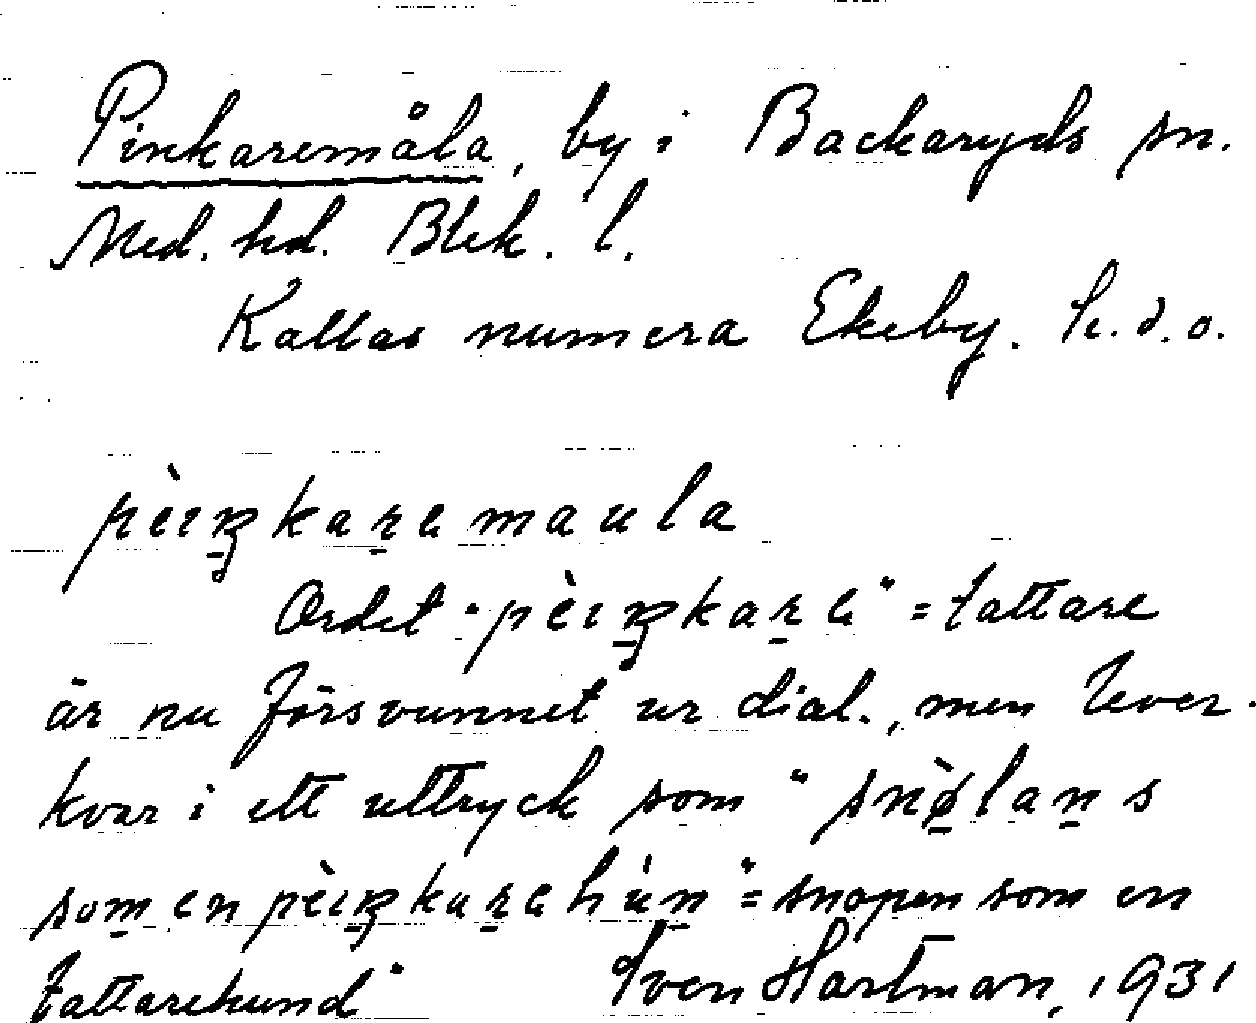 Pinkaremåla, by i Backaryds sn.
Med. hd. Blek. l.
Kallas numera Ekeby. h.d.o.
pèıŋkaṟemaula
Ordet "pèıŋkaṟe" = tattare
är nu försvunnet ur dial., men lever
kvar i ett uttryck som "snø̀laṉs
som en pèıŋkaṟehùṉ" = snopen som en
tattarehund"
Sven Hartman, 1931